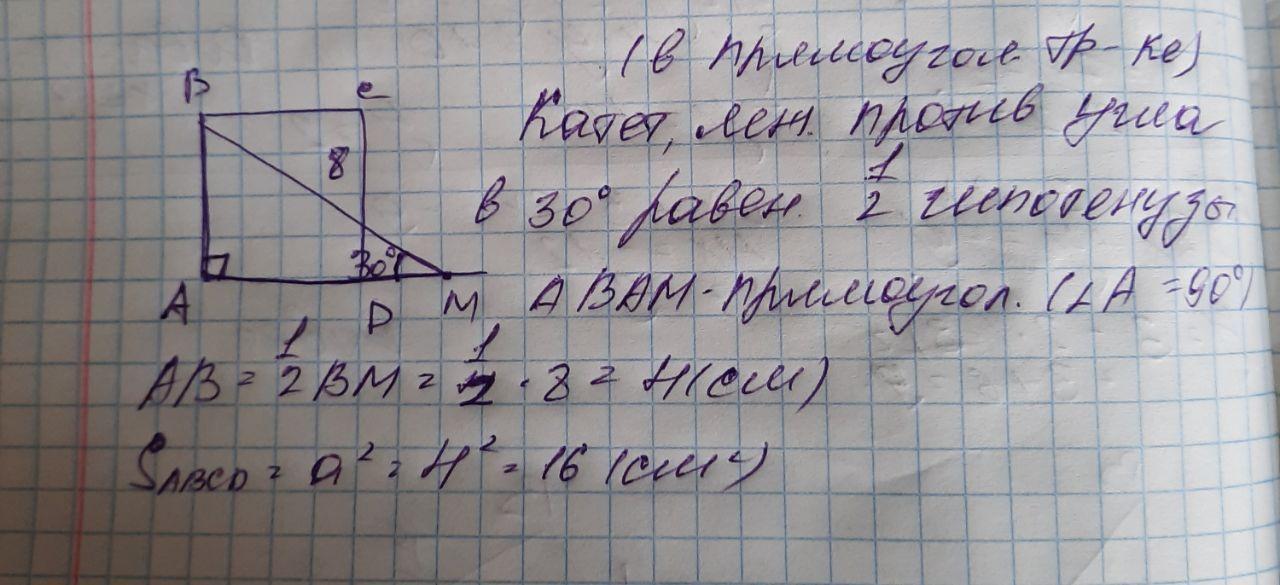 (в прямоугол. тр-ке)
Катет, леж. против угла
в 30° равен. 1/2 гипотенузы
B
C
8
30°
A
D
M
ΔBAM - прямоугол. (∠A = 90°)
AB = 1/2 BM = 1/2 · 8 = 4 (см)
SABCD = a² = 4² = 16 (см²)